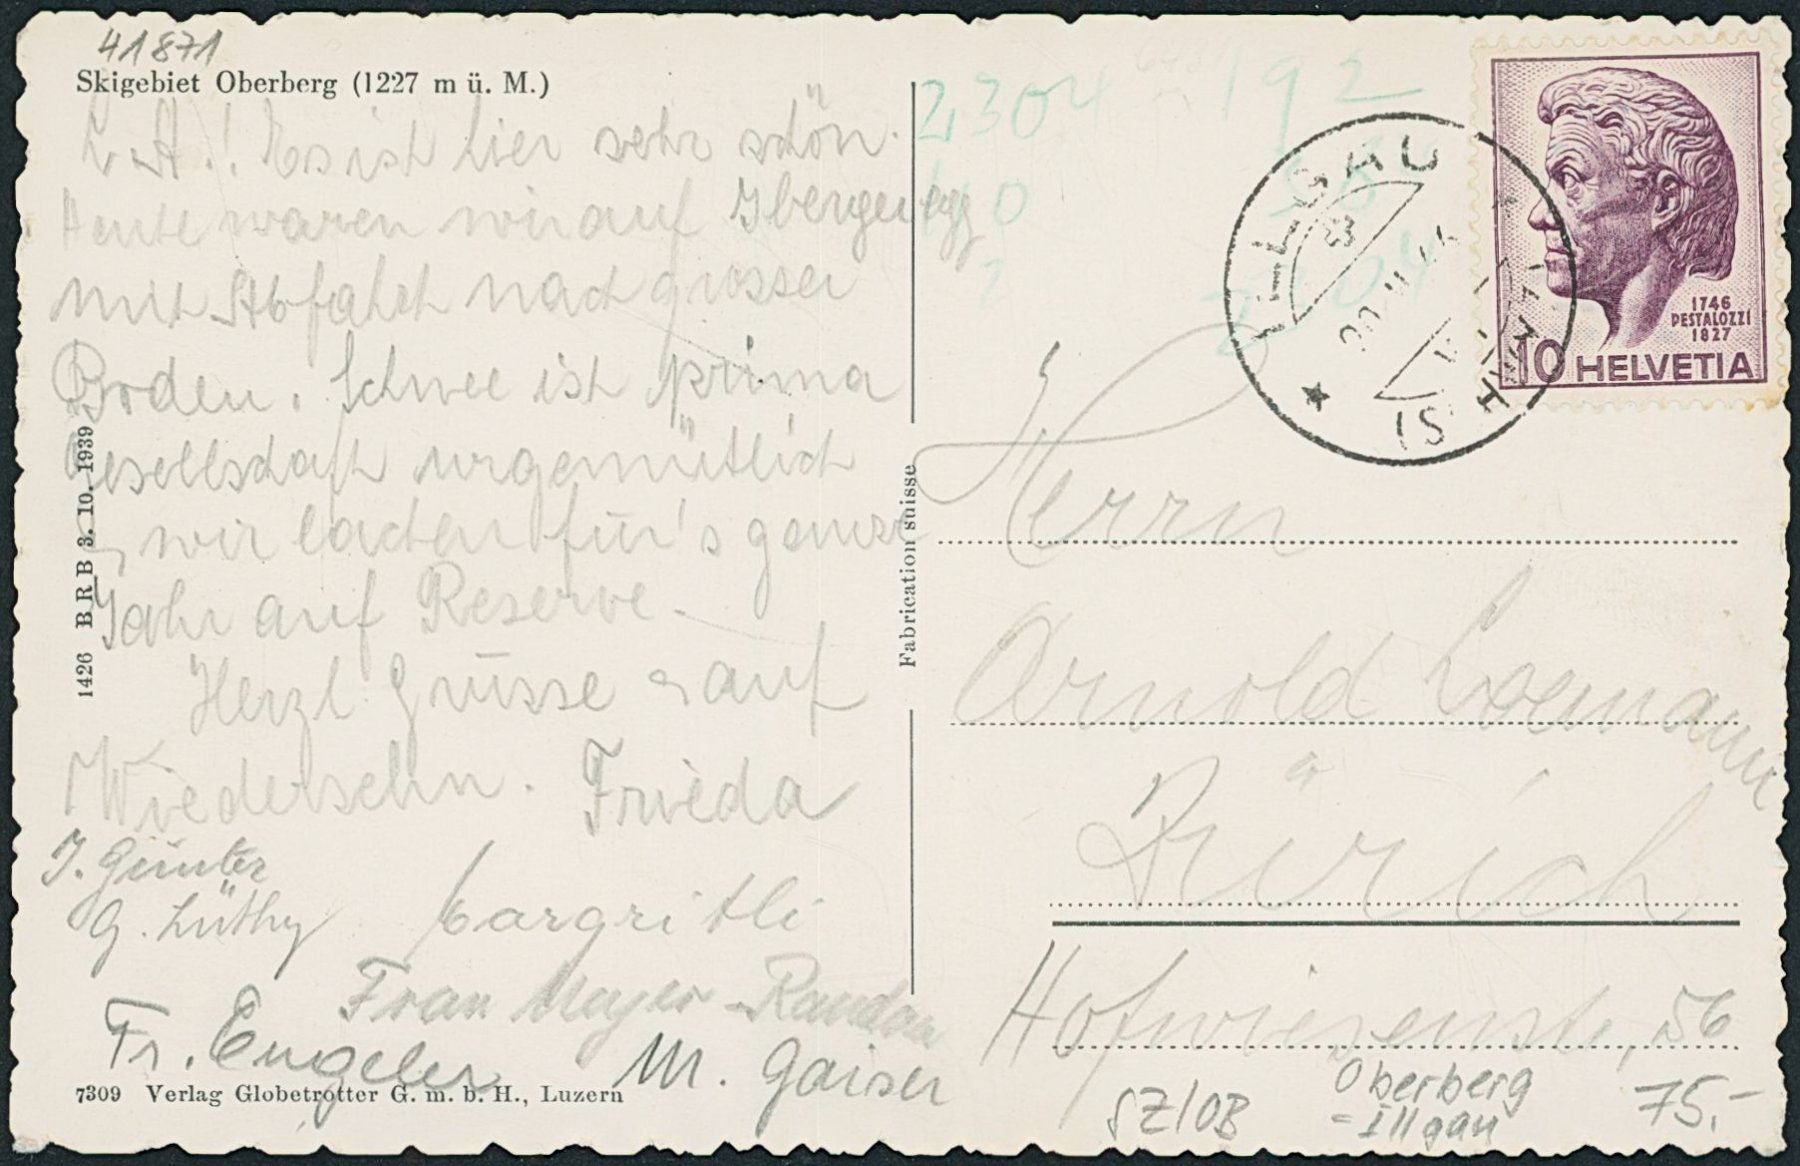 41871
Skigebiet Oberberg (1227 m ü. M.)
L. A.! Es ist hier sehr schön.
Heute waren wir auf Ibergeregg
mit Abfahrt nach grosser
Boden. Schnee ist prima
Gesellschaft urgemütlich
wir lachen für's ganze
Jahr auf Reserve.
Herzl. Grüsse & auf
Wiedersehn. Frieda
J. Günter
G. Lüthy
Margritli
Frau Meyer-Randau
Fr. Engeler
M. Gaiser
7309 Verlag Globetrotter G. m. b. H., Luzern
1426 B R B 3. 10. 1939
Fabrication suisse
2304
192
ILLGAU
(SCHWYZ)
1746
PESTALOZZI
1827
10 HELVETIA
Herrn
Arnold
Zürich
Hofwiesenstr, 56
SZ/OB
Oberberg
= Illgau
75.-